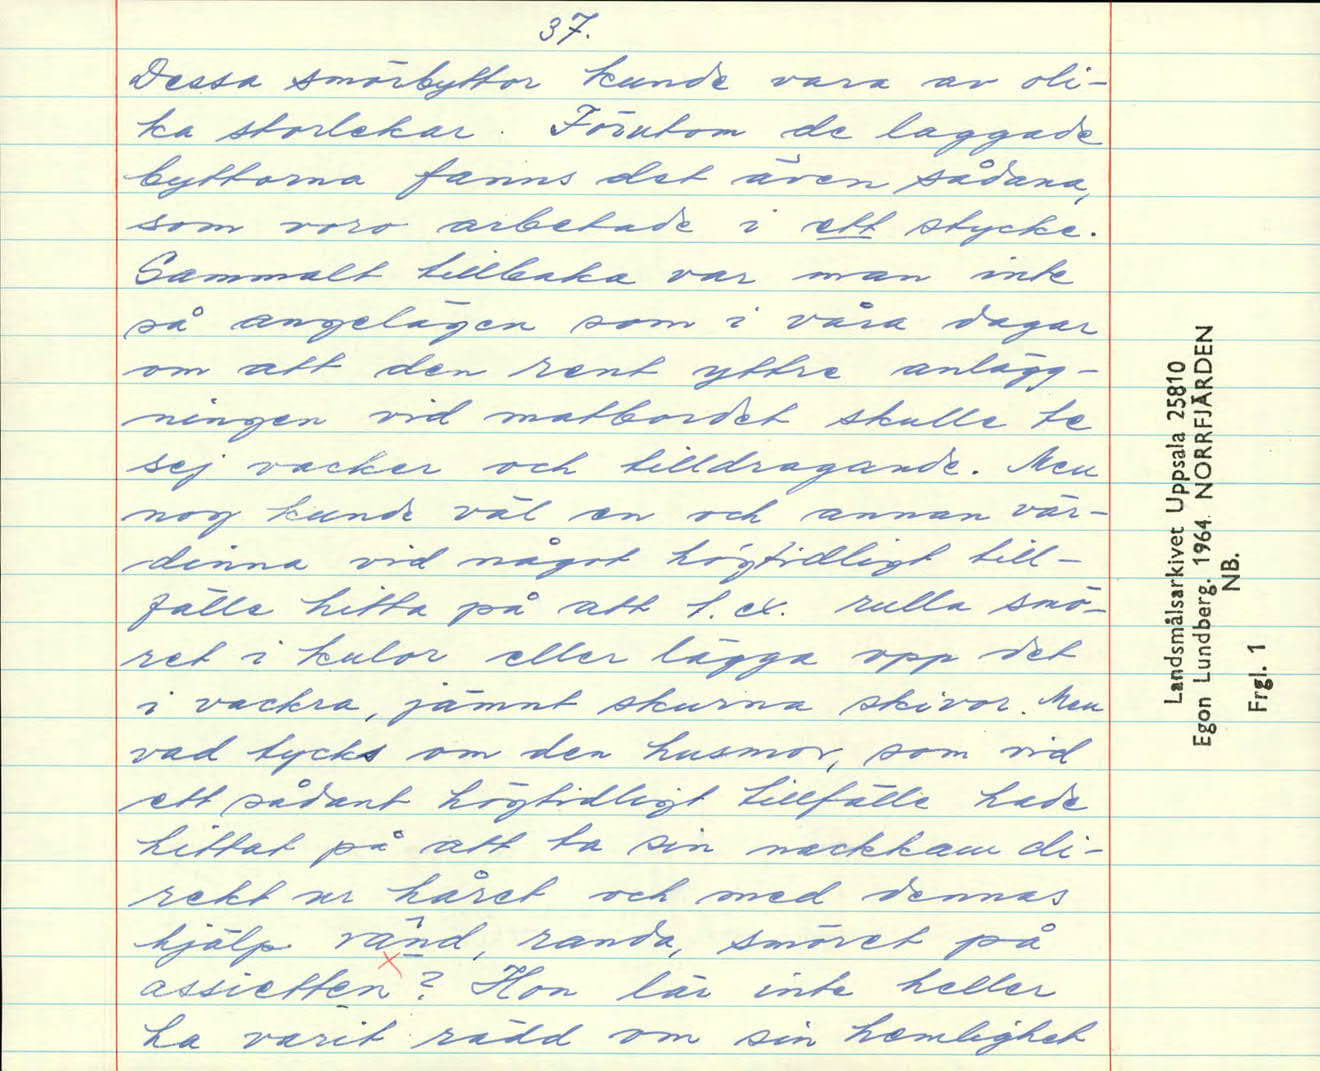 37.
Dessa smörbyttor kunde vara av oli-
ka storlekar. Förutom de laggade
byttorna fanns det även sådana,
som voro arbetade i ett stycke.
Gammalt tillbaka var man inte
så angelägen som i våra dagar
om att den rent yttre anlägg-
ningen vid matbordet skulle te
sej vacker och tilldragande. Men
nog kunde väl en och annan vär-
dinna vid något högtidligt till-
fälle hitta på att t.ex. rulla smö-
ret i kulor eller lägga opp det
i vackra, jämnt skurna skivor. Men
vad tycks om den husmor, som vid
ett sådant högtidligt tillfälle hade
hittat på att ta sin nackkam di-
rekt ur håret och med dennas
hjälp rand, randa, smöret på
assietten? Hon lär inte heller
ha varit rädd om sin hemlighet
Landsmålsarkivet Uppsala 25810
Egon Lundberg. 1964. NORRFJÄRDEN
NB.
Frgl. 1